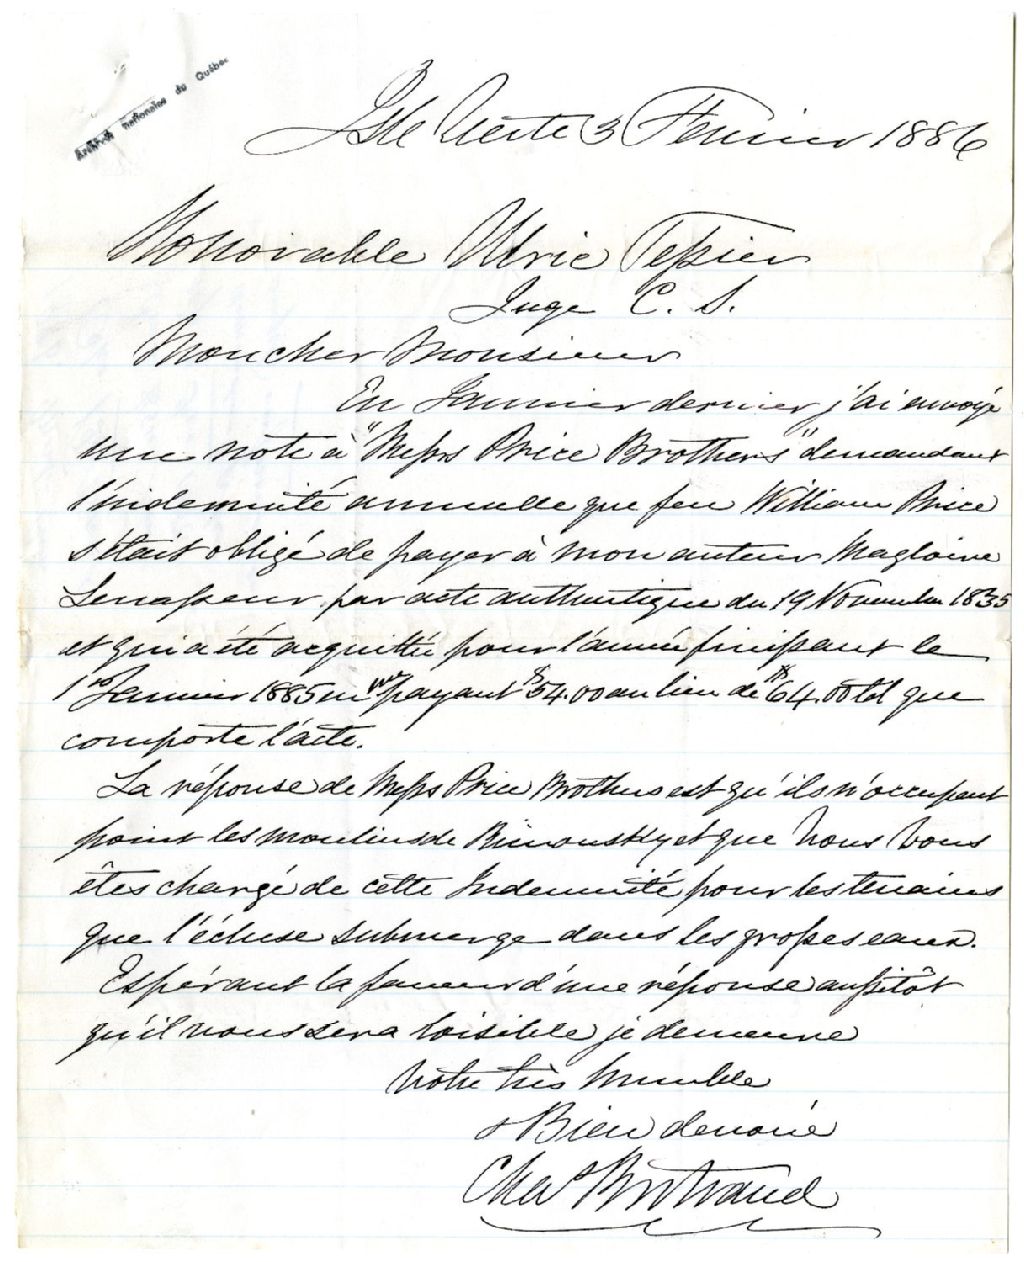 Archives nationales du Québec
Isle Verte 3 Février 1886
Honorable Ulric Tessier
Juge C. S.
Mon cher Monsieur
En Janvier dernier j'ai envoyé
une note à "Messrs Price Brothers" demandant
l'indemnité annuelle que feu William Price
s'était obligé de payer à mon auteur Magloire
Levasseur par acte authentique du 19 Novembre 1835
et qui a été acquittée pour l'année finissant le
1er Janvier 1885 en me payant $54.00 au lieu de $64.00 tel que
comporte l'acte.
La réponse de Messrs Price Brothers est qu'ils n'occupent
point les moulins de Rimouski et que Vous Vous
êtes chargé de cette Indemnité pour les terrains
que l'écluse submerge dans les grosses eaux.
Espérant la faveur d'une réponse aussitôt
qu'il vous sera loisible je demeure
Votre très humble
& Bien dévoué
Chas Bertrand